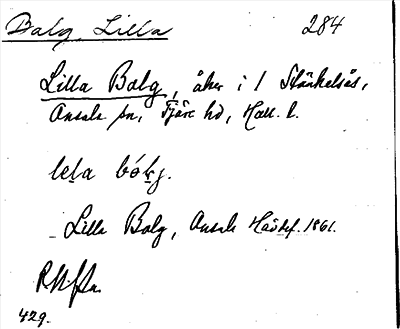 Balg, Lilla 284
Lilla Balg, åker i 1 Stänkelsås,
Onsala sn, Fjäre hd, Hall. l.
lela bólj.
Lilla Balg, Onsala Hädef. 1861.
429.